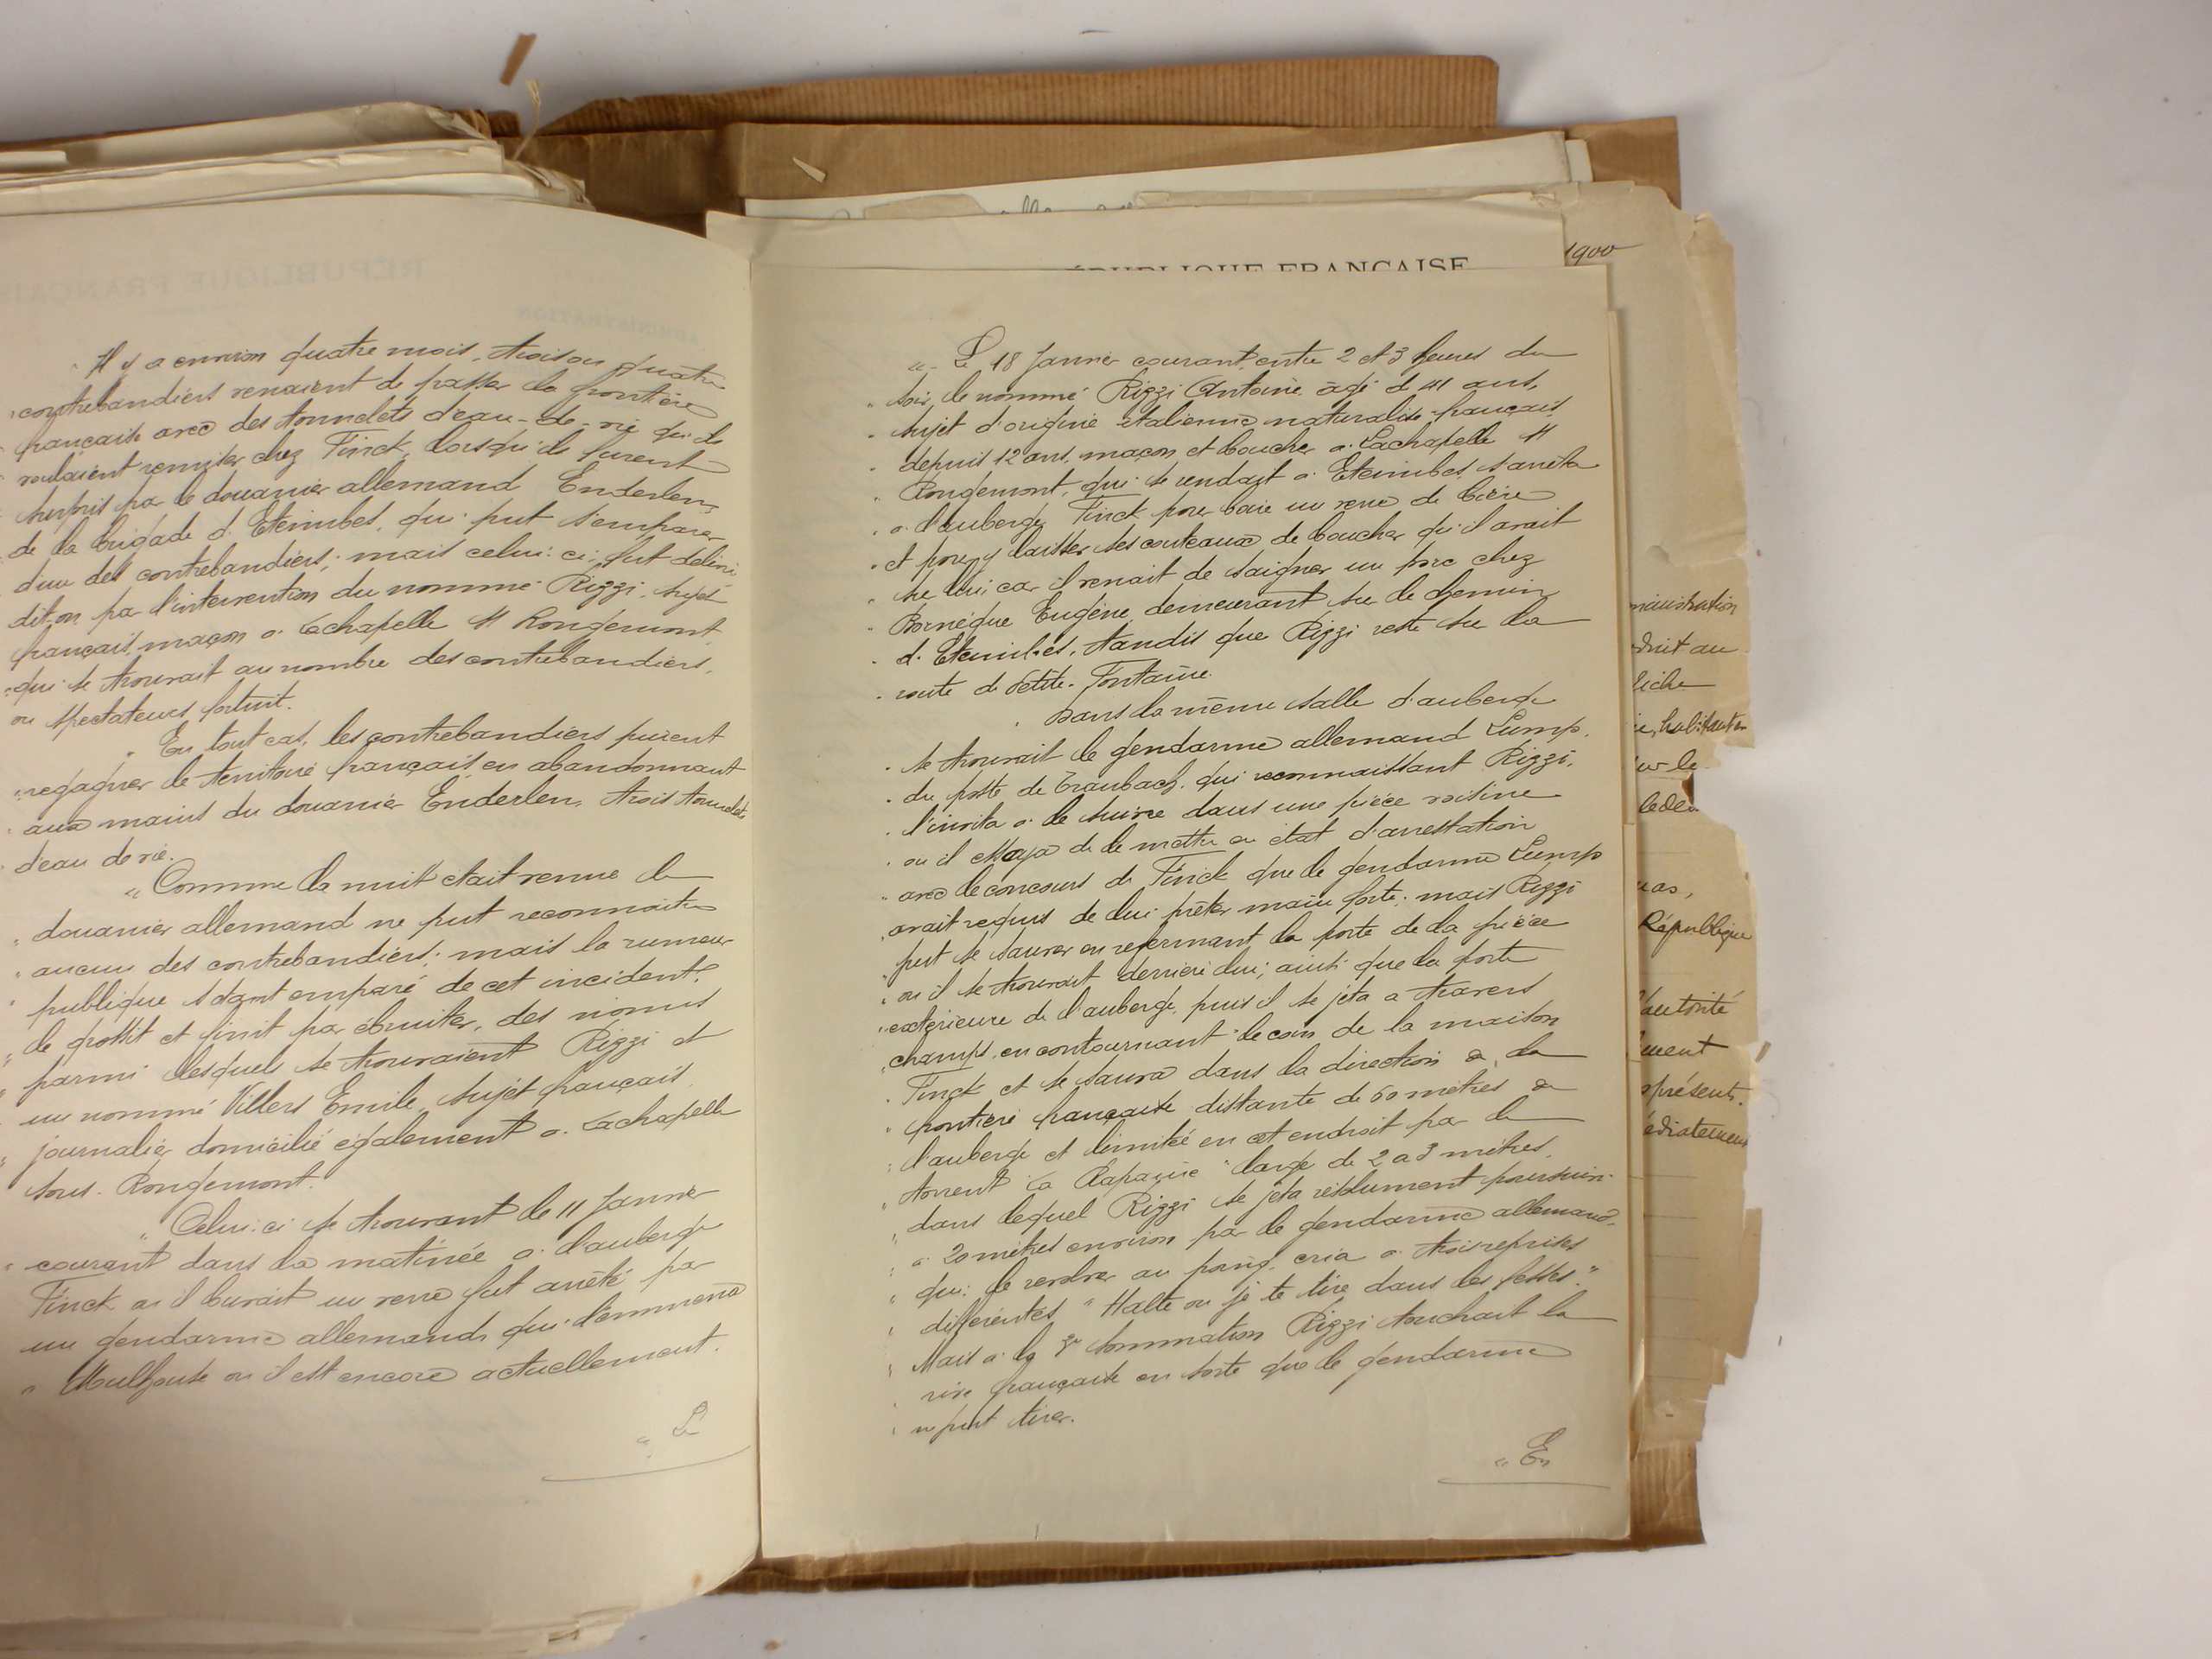 Il y a environ quatre mois, trois ou quatre
contrebandiers venaient de passer la frontière
française avec des tonnelets d'eau-de-vie qu'ils
voulaient remiser chez Finck, lorsqu'ils furent
surpris par le douanier allemand Enderlen,
de la brigade d'Eteimbes, qui put s'emparer
d'un des contrebandiers; mais celui-ci fut délivré
dit-on par l'intervention du nommé Rizzi, sujet
français, maçon à Lachapelle s/s Rougemont,
qui se trouvait au nombre des contrebandiers,
ou spectateurs fortuit.
" En tout cas, les contrebandiers purent
" regagner le territoire français en abandonnant
" aux mains du douanier Enderlen, trois tonnelets
d'eau de vie.
" Comme la nuit était venue le
" douanier allemand ne put reconnaître
" aucun des contrebandiers; mais la rumeur
" publique s'étant emparé de cet incident,
" le grossit et finit par ébruiter, des noms
" parmi lesquels se trouvaient Rizzi et
un nommé Villers Emile, sujet français,
" journalier domicilié également à Lachapelle
sous-Rougemont.
" Celui-ci se trouvant le 11 Janvier
" courant dans la matinée à l'auberge
Finck où il buvait un verre fut arrêté par
un gendarme allemand qui l'emmena
à Mulhouse où il est encore actuellement.
" Le
RÉPUBLIQUE FRANÇAISE
1900
" Le 18 Janvier courant entre 2 et 3 heures du
" soir, le nommé Rizzi Antoine âgé de 41 ans,
" sujet d'origine italienne naturalisé français
" depuis 12 ans, maçon et boucher à Lachapelle s/s
" Rougemont, qui se rendait à Eteimbes, s'arrêta
" à l'auberge Finck pour boire un verre de bière
" et pour y laisser ses couteaux de boucher qu'il avait
" sur lui car il venait de saigner un porc chez
" Bornèque Eugène, demeurant sur le chemin
" d'Eteimbes, tandis que Rizzi reste sur la
" route de Petite-Fontaine.
" Dans la même salle d'auberge
" se trouvait le gendarme allemand Lump,
" du poste de Traubach, qui reconnaissant Rizzi,
" l'invita à le suivre dans une pièce voisine
" où il essaya de le mettre en état d'arrestation
" avec le concours de Finck que le gendarme Lump
" avait requis de lui prêter main forte; mais Rizzi
" put se sauver en refermant la porte de la pièce
" où il se trouvait, derrière lui, ainsi que la porte
" extérieure de l'auberge, puis il se jeta à travers
" champs, en contournant le coin de la maison
" Finck et se sauva dans la direction de la
" frontière française distante de 60 mètres de
" l'auberge et limitée en cet endroit par le
" torrent large de 2 à 3 mètres,
" dans lequel Rizzi se jeta résolument poursuivi
" à 20 mètres environ par le gendarme allemand,
" qui, le revolver au poing, cria à trois reprises
" différentes "Halte ou je te tire dans les fesses."
" Mais à la 3e sommation Rizzi touchait la
" rive française en sorte que le gendarme
" ne put tirer.
" En
duit au
habitant
République
l'autorité